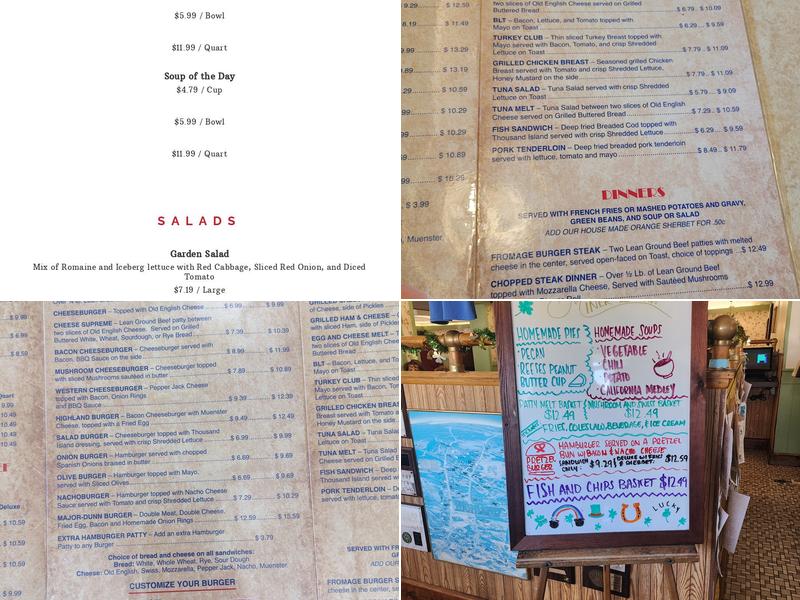 $5.99 / Bowl
$11.99 / Quart
Soup of the Day
$4.79 / Cup
$5.99 / Bowl
$11.99 / Quart
SALADS
Garden Salad
Mix of Romaine and Iceberg lettuce with Red Cabbage, Sliced Red Onion, and Diced
Tomato
$7.19 / Large
two slices of Old English Cheese served on Grilled
Buttered Bread $ 6.79 .. $ 10.09
BLT – Bacon, Lettuce, and Tomato topped with
Mayo on Toast $ 6.29 ... $ 9.59
TURKEY CLUB – Thin sliced Turkey Breast topped with
Mayo served with Bacon, Tomato, and crisp Shredded
Lettuce on Toast $ 7.79 .. $ 11.09
GRILLED CHICKEN BREAST – Seasoned grilled Chicken
Breast served with Tomato and crisp Shredded Lettuce,
Honey Mustard on the side $ 7.79 .. $ 11.09
TUNA SALAD – Tuna Salad served with crisp Shredded
Lettuce on Toast $ 5.79 ... $ 9.09
TUNA MELT – Tuna Salad between two slices of Old English
Cheese served on Grilled Buttered Bread $ 7.29 .. $ 10.59
FISH SANDWICH – Deep fried Breaded Cod topped with
Thousand Island served with crisp Shredded Lettuce $ 6.29 ... $ 9.59
PORK TENDERLOIN – Deep fried breaded pork tenderloin
served with lettuce, tomato and mayo $ 8.49 .. $ 11.79
DINNERS
SERVED WITH FRENCH FRIES OR MASHED POTATOES AND GRAVY,
GREEN BEANS, AND SOUP OR SALAD
ADD OUR HOUSE MADE ORANGE SHERBET FOR .50c
FROMAGE BURGER STEAK – Two Lean Ground Beef patties with melted
cheese in the center, served open-faced on Toast, choice of toppings ...$ 12.49
CHOPPED STEAK DINNER – Over ½ Lb. of Lean Ground Beef
topped with Mozzarella Cheese, Served with Sautéed Mushrooms
$ 12.99
$ 12.59
$ 11.49
$ 13.29
$ 13.19
$ 10.59
$ 10.29
$ 10.29
$ 10.89
$ 3.99
Muenster
CHEESEBURGER – Topped with Old English Cheese $ 6.69 $ 9.99
CHEESE SUPREME – Lean Ground Beef patty between
two slices of Old English Cheese. Served on Grilled
Buttered White, Wheat, Sourdough, or Rye Bread $ 7.39 $ 10.39
BACON CHEESEBURGER – Cheeseburger served with
Bacon, BBQ Sauce on the side $ 8.99 $ 11.99
MUSHROOM CHEESEBURGER – Cheeseburger topped
with sliced Mushrooms sautéed in butter $ 7.89 $ 10.89
WESTERN CHEESEBURGER – Pepper Jack Cheese
topped with Bacon, Onion Rings
and BBQ Sauce $ 9.39 $ 12.39
HIGHLAND BURGER – Bacon Cheeseburger with Muenster
Cheese, topped with a Fried Egg $ 9.49 $ 12.49
SALAD BURGER – Cheeseburger topped with Thousand
Island dressing, served with crisp Shredded Lettuce $ 6.99 $ 9.99
ONION BURGER – Hamburger served with chopped
Spanish Onions braised in butter $ 6.69 $ 9.69
OLIVE BURGER – Hamburger topped with Mayo,
served with Sliced Olives $ 6.69 $ 9.69
NACHOBURGER – Hamburger topped with Nacho Cheese
Sauce served with Tomato and crisp Shredded Lettuce $ 7.29 $ 10.29
MAJOR-DUNN BURGER – Double Meat, Double Cheese,
Fried Egg, Bacon and Homemade Onion Rings $ 12.59 $ 15.59
EXTRA HAMBURGER PATTY – Add an extra Hamburger
Patty to any Burger $ 3.79
Choice of bread and cheese on all sandwiches:
Bread: White, Whole Wheat, Rye, Sour Dough
Cheese: Old English, Swiss, Mozzarella, Pepper Jack, Nacho, Muenster
CUSTOMIZE YOUR BURGER
HOMEMADE PIES
PECAN
REESES PEANUT
BUTTER CUP
HOMEMADE SOUPS
VEGETABLE
CHILI
POTATO
CALIFORNIA MEDLEY
PATTY MELT BASKET
$12.49
MUSHROOM AND SWISS BASKET
$12.49
FRIES, COLESLAW, BEVERAGE, ICE CREAM
PRETZEL
BURGER
HAMBURGER SERVED ON A PRETZEL
BUN W/ BACON & NACHO CHEESE
SANDWICH ONLY $9.29
$12.59
FISH AND CHIPS BASKET $12.49
LUCKY